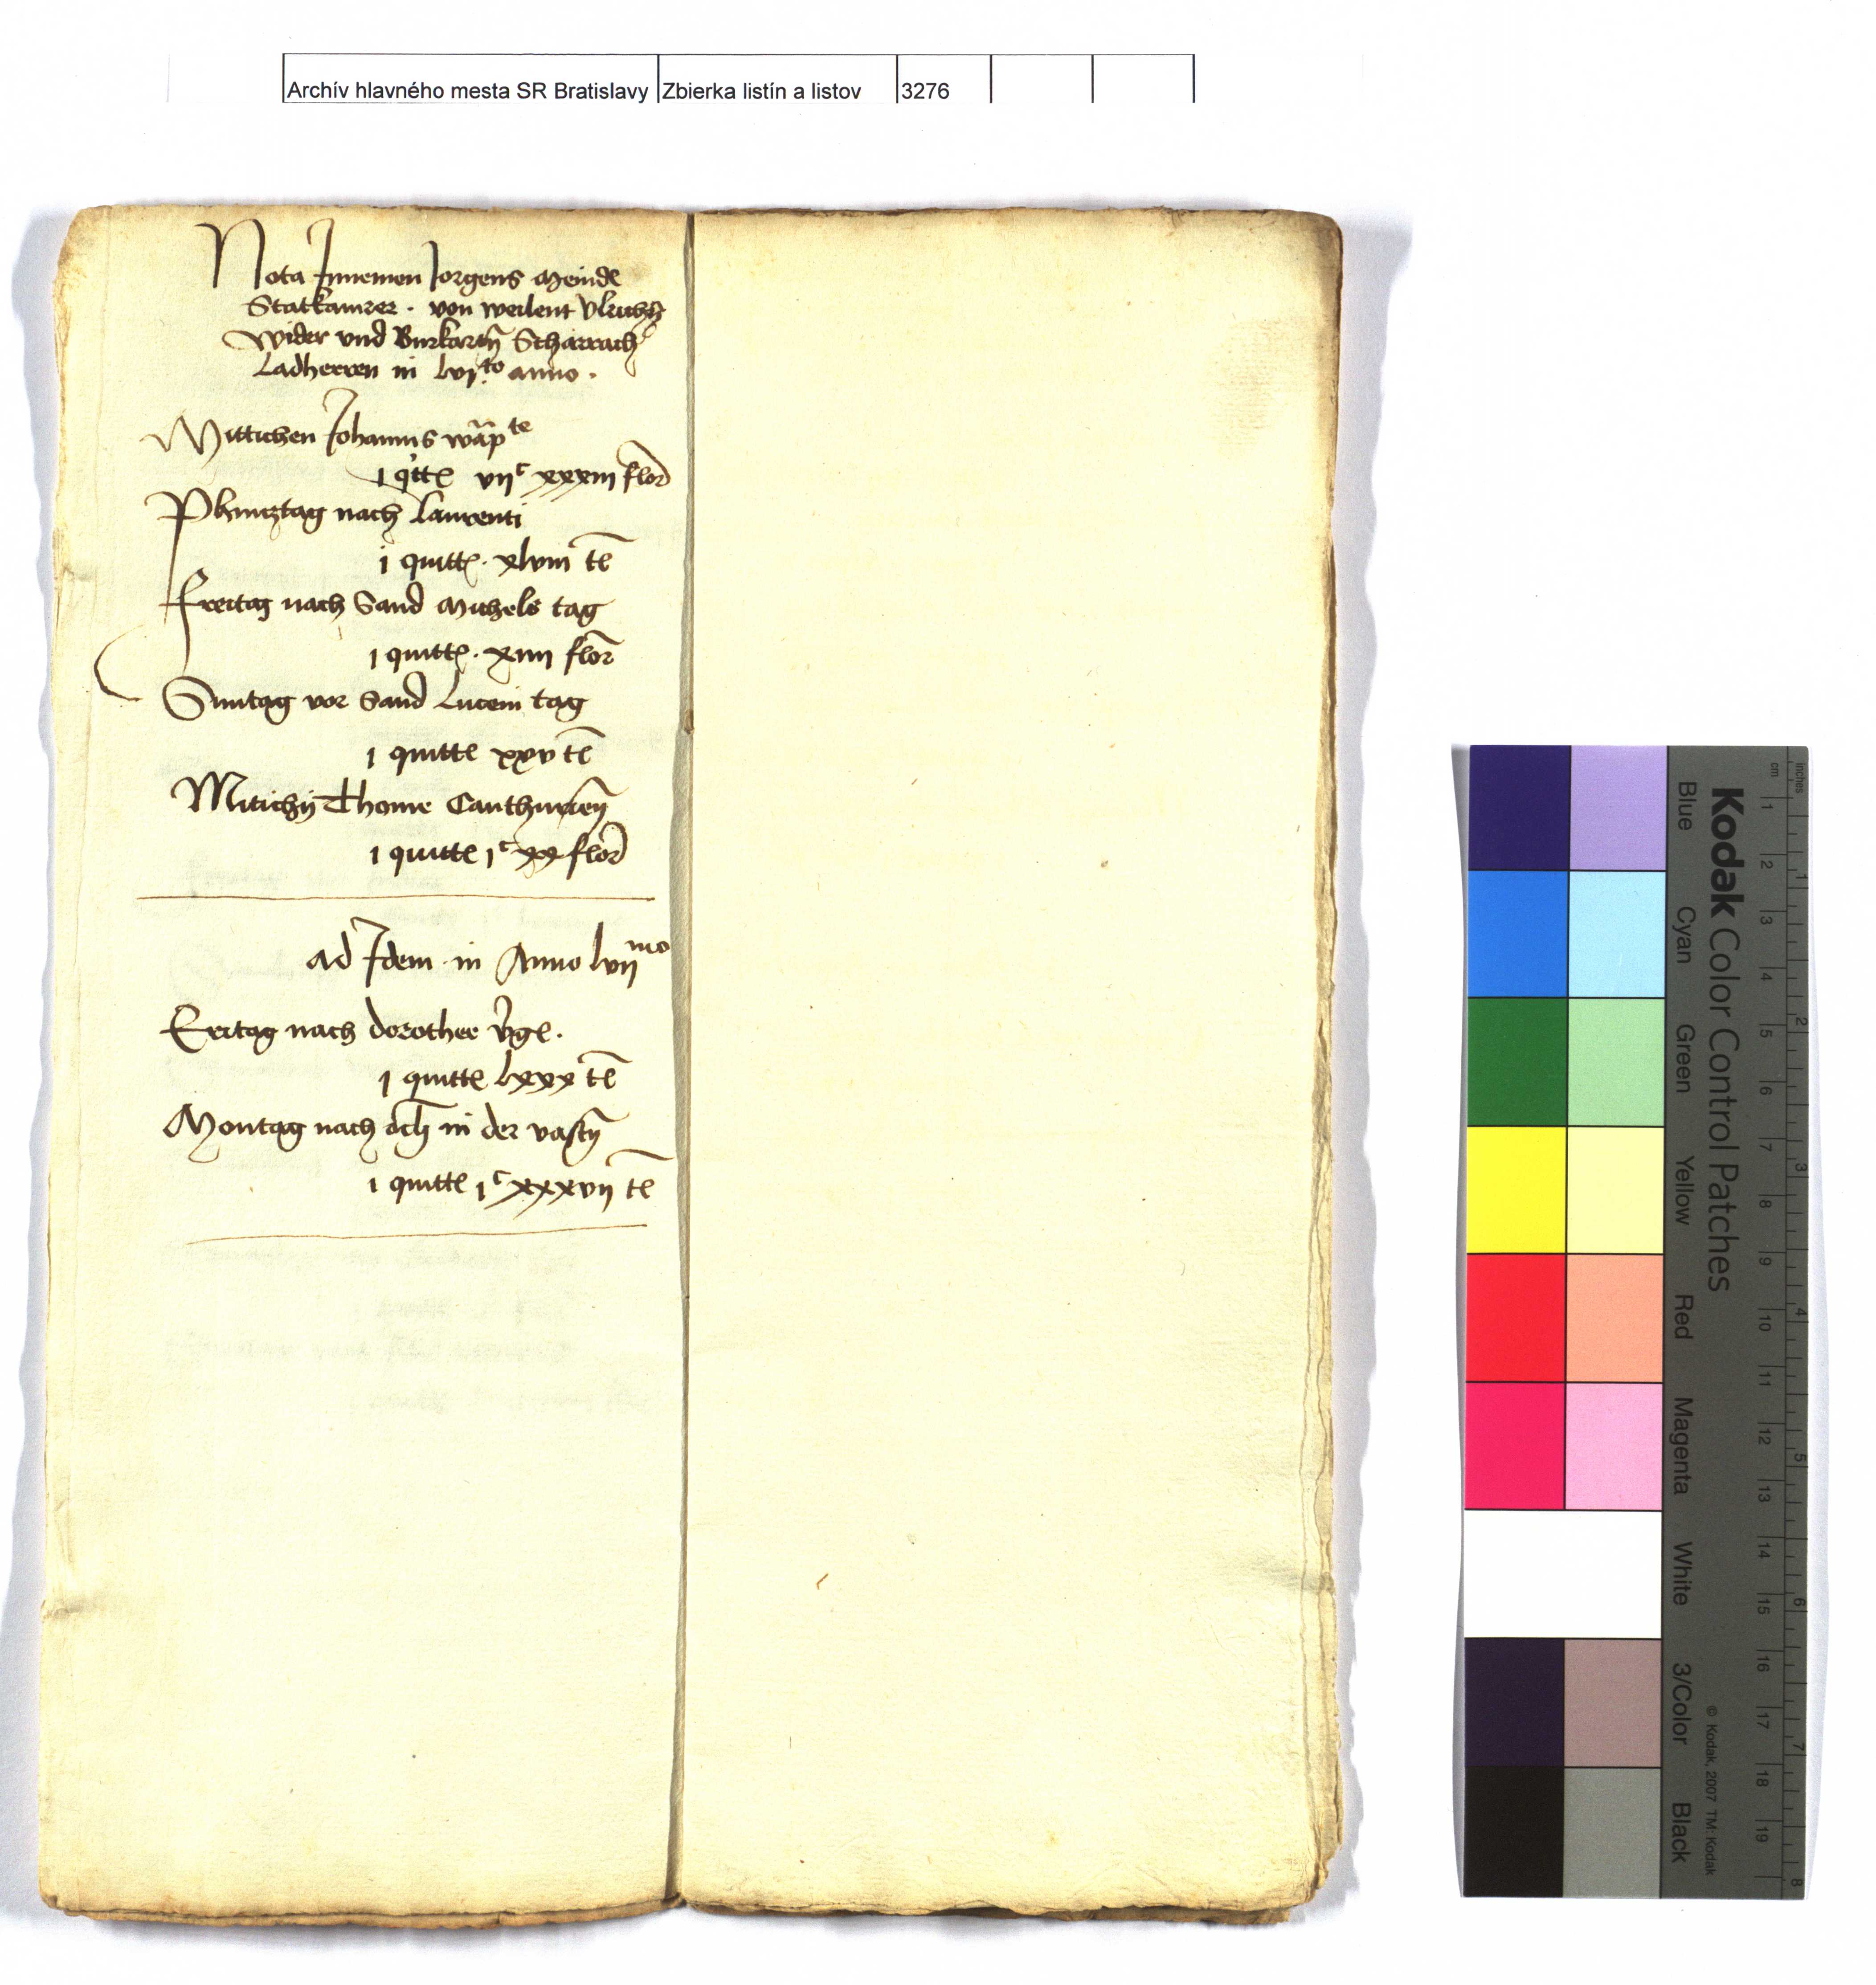 Archív hlavného mesta SR Bratislavy Zbierka listín a listov 3276
Nota Innemen Jorgens Meindl
Statkamrer . von weilent Ulrichn
Wider und Burkartn Scharrach
Ladherren in lvjto anno .
Mittichen Johannis
j qtte vijc xxxiij flor
Phincztag nach Laurenti
j quitte . xlviij te
Freitag nach Sand Michels tag
j quitte . xiiij flor
Suntag vor Sand Lucein tag
j quitte xxv te
Mitichn Thome
j quitte jc xx flor
ad Idem in Anno lvijmo
Eritag nach dorothee
j quitte lxxx te
Montag nach in der vastn
j quitte jc xxxvij te
Kodak Color Control Patches
Blue Cyan Green Yellow Red Magenta White 3/Color Black
© Kodak, 2007 TM: Kodak
inches 1 2 3 4 5 6 7 8
cm 1 2 3 4 5 6 7 8 9 10 11 12 13 14 15 16 17 18 19